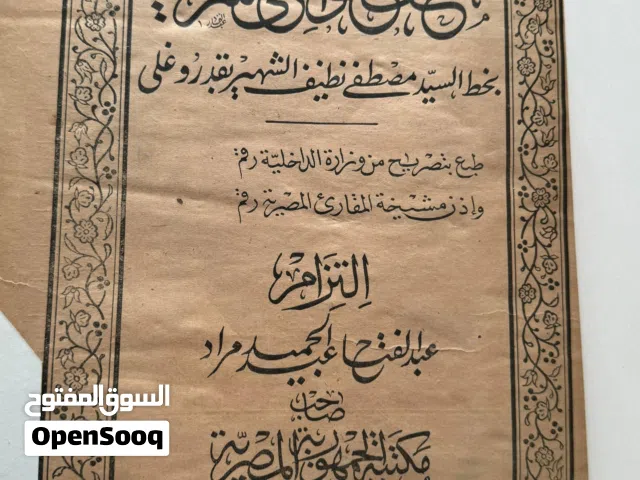 بخط السيد مصطفى نظيف الشهير بقدروغلى
طبع بتصريح من وزارة الداخلية رقم
وإذن مشيخة المقارئ المصرية رقم
التزام
عبد الفتاح عبد الحميد مراد
صاحب
مكتبة الجمهورية المصرية
السوق المفتوح
OpenSooq